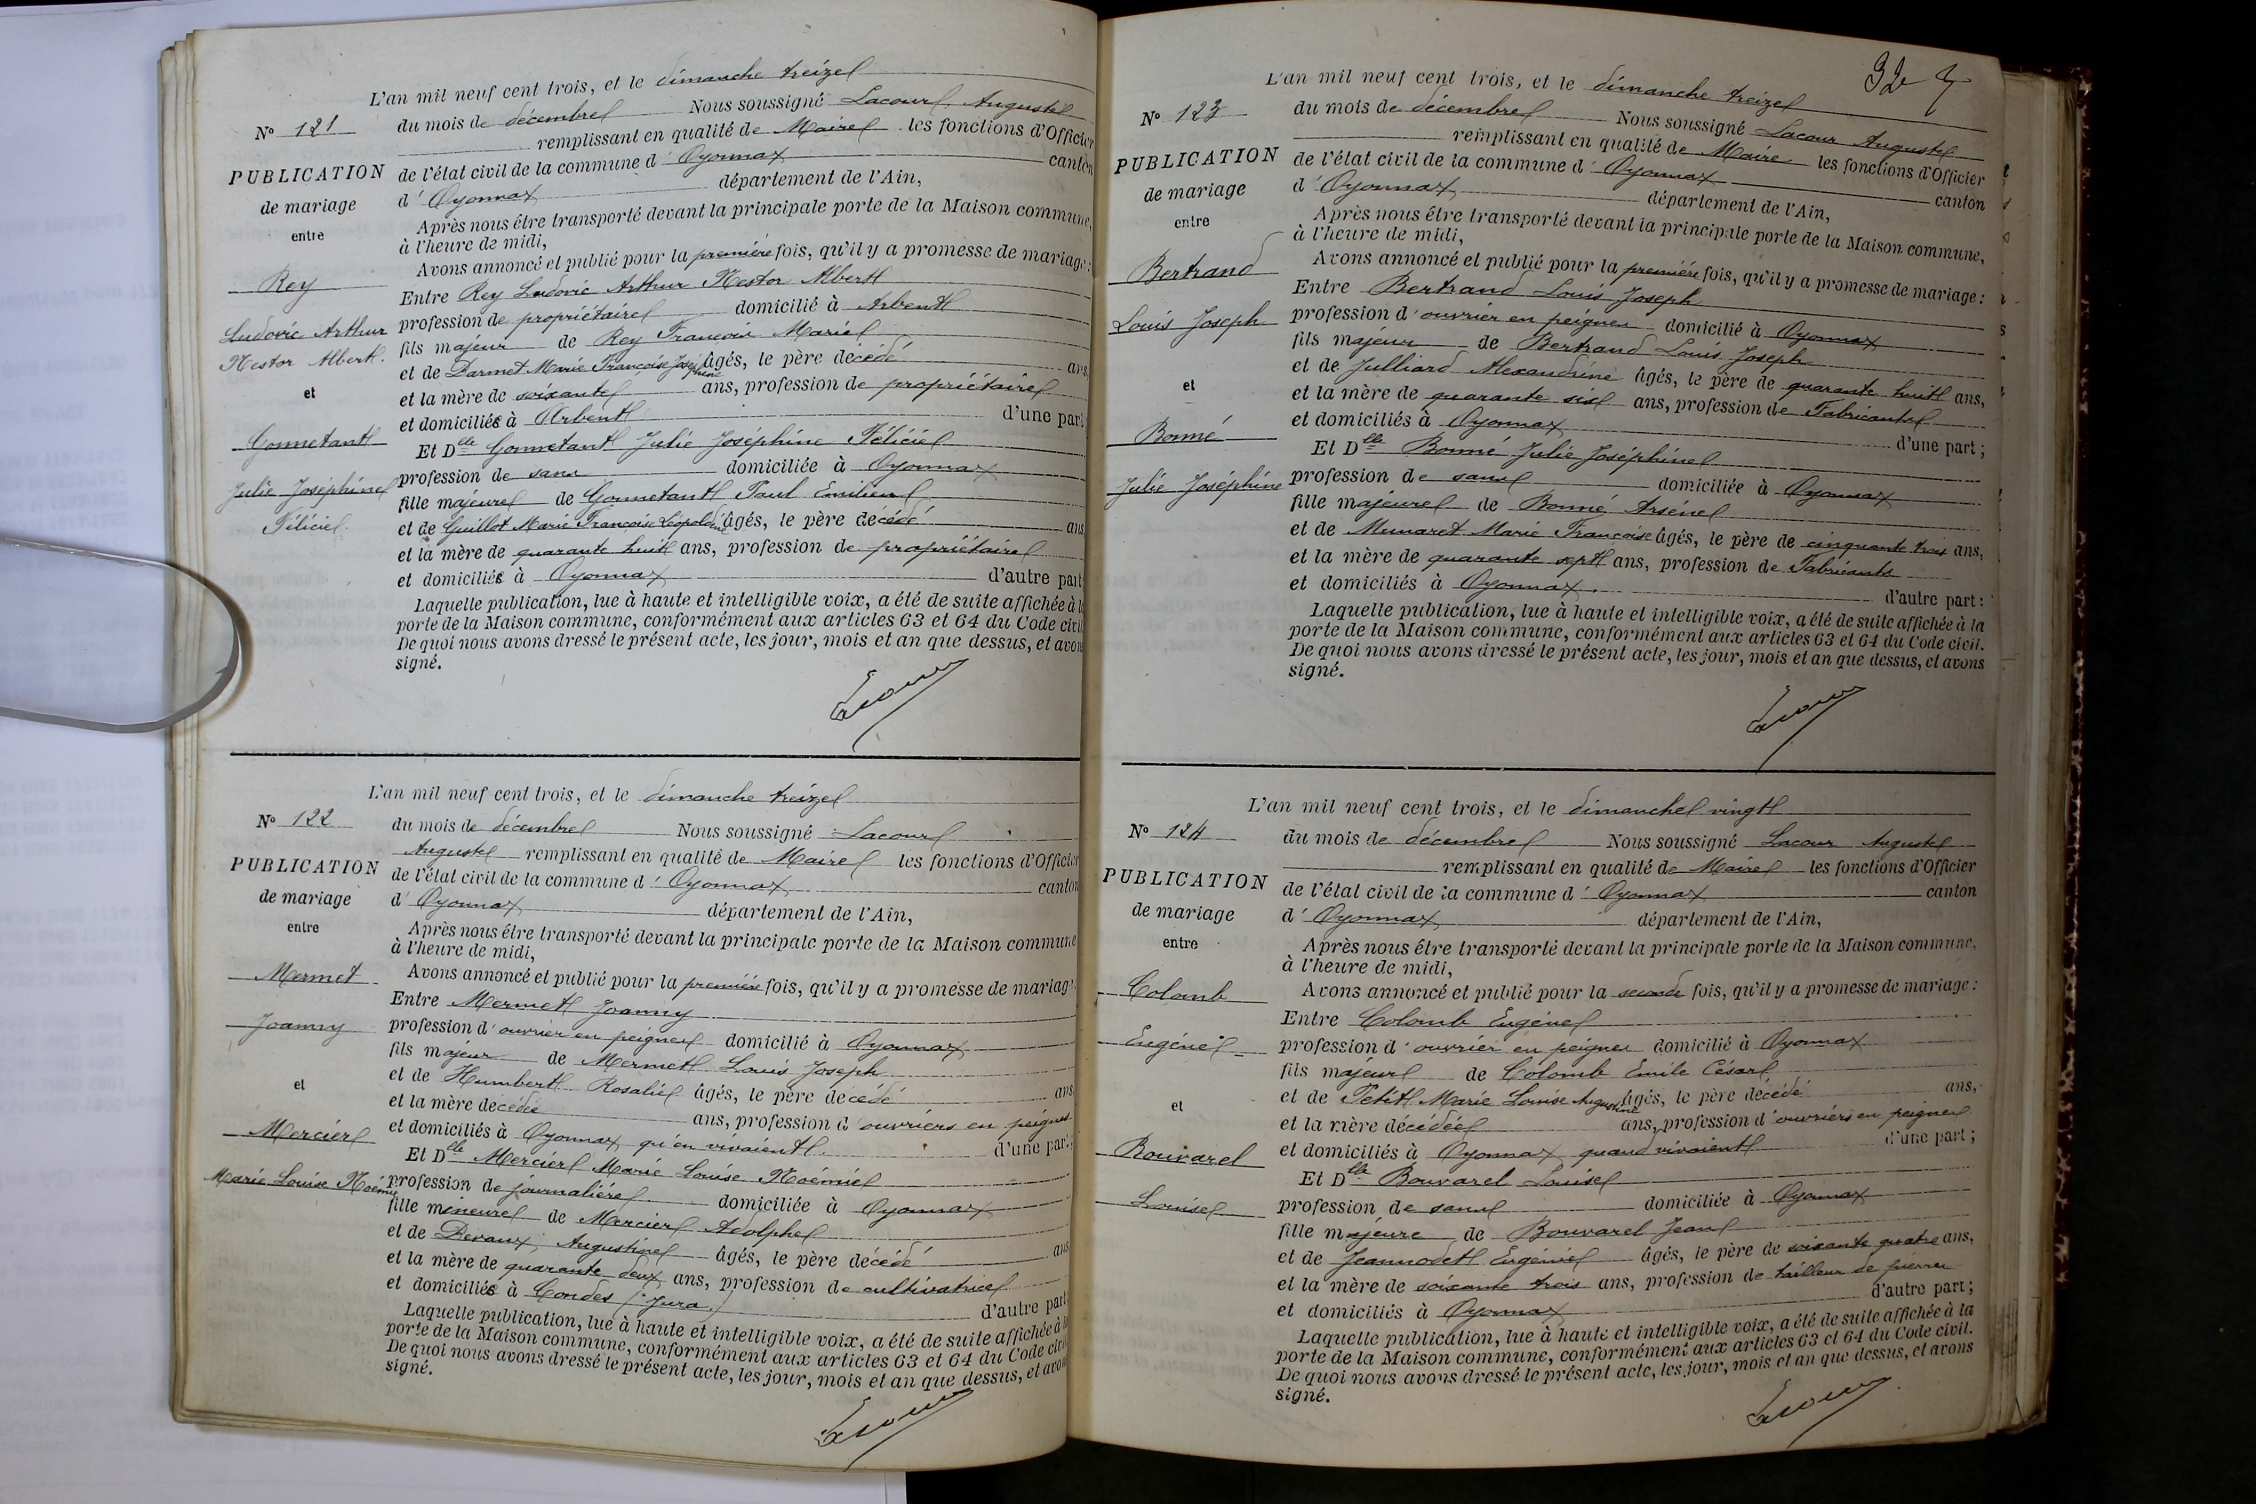 L'an mil neuf cent trois, et le dimanche treize
N° 121
du mois de décembre Nous soussigné Lacour Auguste
remplissant en qualité de Maire les fonctions d'Officier
PUBLICATION
de l'état civil de la commune d' Oyonnax canton
de mariage
d' Oyonnax département de l'Ain,
entre
Après nous être transporté devant la principale porte de la Maison commune,
à l'heure de midi,
Avons annoncé et publié pour la première fois, qu'il y a promesse de mariage :
Rey
Entre Rey Ludovic Arthur Nestor Albert
Ludovic Arthur
profession de propriétaire domicilié à Arbent
Nestor Albert.
fils majeur de Rey François Marie
et de Darmet Marie Françoise Joséphine âgés, le père décédé ans
et
et la mère de soixante ans, profession de propriétaire
et domiciliés à Arbent d'une part
Gonnetant
Et Dlle Gonnetant Julie Joséphine Félicie
Julie Joséphine
profession de sans domiciliée à Oyonnax
Félicie.
fille majeure de Gonnetant Paul Emilien
et de Guillot Marie Françoise Léopoldine âgés, le père décédé ans
et la mère de quarante huit ans, profession de propriétaire
et domiciliés à Oyonnax d'autre part
Laquelle publication, lue à haute et intelligible voix, a été de suite affichée à la
porte de la Maison commune, conformément aux articles 63 et 64 du Code civil
De quoi nous avons dressé le présent acte, les jour, mois et an que dessus, et avons
signé.
Lacour
L'an mil neuf cent trois, et le dimanche treize
N° 122
du mois de décembre Nous soussigné Lacour
Auguste remplissant en qualité de Maire les fonctions d'Officier
PUBLICATION
de l'état civil de la commune d' Oyonnax canton
de mariage
d' Oyonnax département de l'Ain,
entre
Après nous être transporté devant la principale porte de la Maison commune
à l'heure de midi,
Mermet
Avons annoncé et publié pour la première fois, qu'il y a promesse de mariage
Entre Mermet Joanny
Joanny
profession d' ouvrier en peignes domicilié à Oyonnax
fils majeur de Mermet Louis Joseph
et de Humbert Rosalie âgés, le père décédé ans
et
et la mère décédée ans, profession d' ouvriers en peignes
et domiciliés à Oyonnax qu'en vivaient. d'une part
Mercier
Et Dlle Mercier Marie Louise Noémie
Marie Louise Noémie
profession de journalière domiciliée à Oyonnax
fille mineure de Mercier Adolphe
et de Devaux Augustine âgés, le père décédé ans
et la mère de quarante deux ans, profession de cultivatrice
et domiciliés à Condes (Jura.) d'autre part
Laquelle publication, lue à haute et intelligible voix, a été de suite affichée à la
porte de la Maison commune, conformément aux articles 63 et 64 du Code civil
De quoi nous avons dressé le présent acte, les jour, mois et an que dessus, et avons
signé.
Lacour
L'an mil neuf cent trois, et le dimanche treize
N° 123
du mois de décembre Nous soussigné Lacour Auguste
remplissant en qualité de Maire les fonctions d'Officier
PUBLICATION
de l'état civil de la commune d' Oyonnax canton
de mariage
d' Oyonnax département de l'Ain,
entre
Après nous être transporté devant la principale porte de la Maison commune,
à l'heure de midi,
Bertrand
Avons annoncé et publié pour la première fois, qu'il y a promesse de mariage :
Entre Bertrand Louis Joseph
Louis Joseph
profession d' ouvrier en peignes domicilié à Oyonnax
fils majeur de Bertrand Louis Joseph
et
et de Julliard Alexandrine âgés, le père de quarante huit ans,
et la mère de quarante six ans, profession de Fabricants
Bonné
et domiciliés à Oyonnax d'une part ;
Et Dlle Bonné Julie Joséphine
Julie Joséphine
profession de sans domiciliée à Oyonnax
fille majeure de Bonné Arsène
et de Munaret Marie Françoise âgés, le père de cinquante trois ans,
et la mère de quarante sept ans, profession de Fabricants
et domiciliés à Oyonnax. d'autre part :
Laquelle publication, lue à haute et intelligible voix, a été de suite affichée à la
porte de la Maison commune, conformément aux articles 63 et 64 du Code civil.
De quoi nous avons dressé le présent acte, les jour, mois et an que dessus, et avons
signé.
Lacour
L'an mil neuf cent trois, et le dimanche vingt
N° 124
du mois de décembre Nous soussigné Lacour Auguste
remplissant en qualité de Maire les fonctions d'Officier
PUBLICATION
de l'état civil de la commune d' Oyonnax canton
de mariage
d' Oyonnax département de l'Ain,
entre
Après nous être transporté devant la principale porte de la Maison commune,
à l'heure de midi,
Colomb
Avons annoncé et publié pour la seconde fois, qu'il y a promesse de mariage :
Entre Colomb Eugène
Eugène
profession d' ouvrier en peignes domicilié à Oyonnax
fils majeur de Colomb Emile César
et de Petit Marie Louise Augustine âgés, le père décédé ans,
et
et la mère décédée ans, profession d' ouvriers en peignes
Bouvarel
et domiciliés à Oyonnax quand vivaient d'une part ;
Et Dlle Bouvarel Louise
Louise
profession de sans domiciliée à Oyonnax
fille majeure de Bouvarel Jean
et de Jeannodet Eugénie âgés, le père de soixante quatre ans,
et la mère de soixante trois ans, profession de tailleur de pierres
et domiciliés à Oyonnax d'autre part ;
Laquelle publication, lue à haute et intelligible voix, a été de suite affichée à la
porte de la Maison commune, conformément aux articles 63 et 64 du Code civil.
De quoi nous avons dressé le présent acte, les jour, mois et an que dessus, et avons
signé.
Lacour